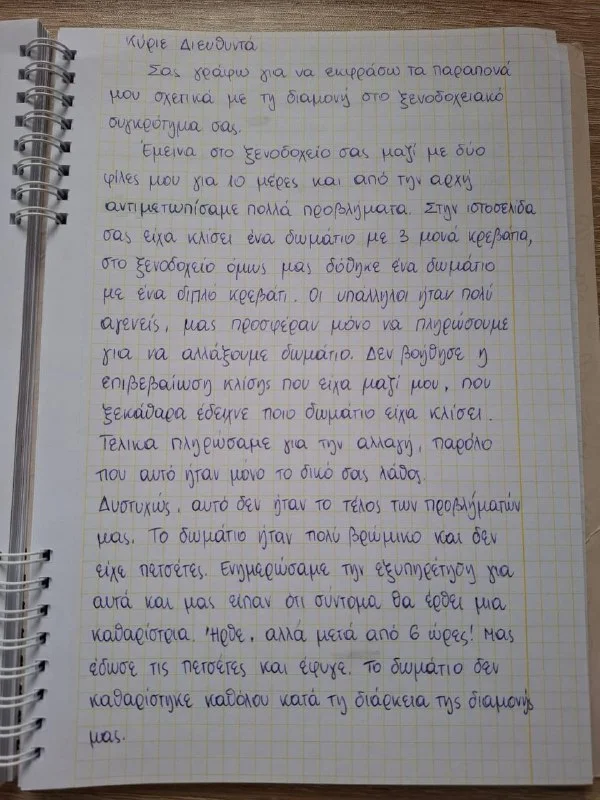 Κύριε Διευθυντά
Σας γράφω για να εκφράσω τα παραπονά
μου σχετικά με τη διαμονή στο ξενοδοχειακό
συγκρότημα σας.
Έμεινα στο ξενοδοχείο σας μαζί με δύο
φίλες μου για 10 μέρες και από την αρχή
αντιμετωπίσαμε πολλά προβλήματα. Στην ιστοσελίδα
σας είχα κλίσει ένα δωμάτιο με 3 μονά κρεβάτια,
στο ξενοδοχείο όμως μας δόθηκε ένα δωμάτιο
με ένα διπλό κρεβάτι. Οι υπάλληλοι ήταν πολύ
αγενείς, μας προσφέραν μόνο να πληρώσουμε
για να αλλάξουμε δωμάτιο. Δεν βοήθησε η
επιβεβαίωση κλίσης που είχα μαζί μου, που
ξεκάθαρα έδειχνε ποιο δωμάτιο είχα κλίσει.
Τελικα πληρώσαμε για την αλλαγή, παρόλο
που αυτό ήταν μόνο το δικό σας λάθος.
Δυστυχώς, αυτό δεν ήταν το τέλος των προβλήματών
μας. Το δωμάτιο ήταν πολύ βρώμικο και δεν
είχε πετσέτες. Ενημερώσαμε την εξυπηρέτηση για
αυτά και μας είπαν ότι σύντομα θα έρθει μια
καθαρίστρια. Ήρθε, αλλά μετά από 6 ώρες! Μας
έδωσε τις πετσέτες και έφυγε. Το δωμάτιο δεν
καθαρίστηκε καθόλου κατά τη διάρκεια της διαμονής
μας.